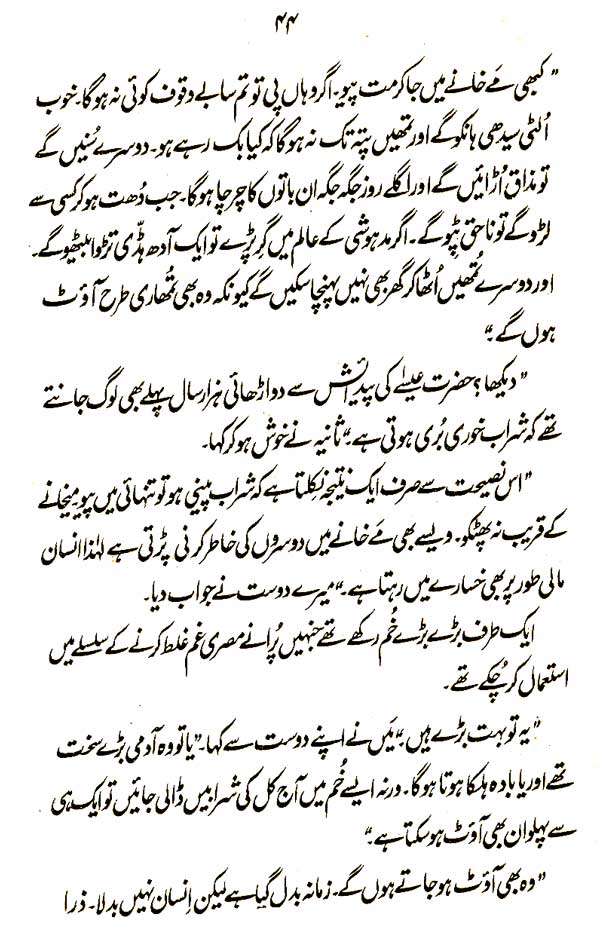 ۴۴
"کبھی مَے خانے میں جا کر مت پیو۔ اگر وہاں پی تو تم سا بے وقوف کوئی نہ ہوگا۔ خوب
اُلٹی سیدھی ہانکو گے اور تمھیں پتہ تک نہ ہوگا کہ کیا بک رہے ہو۔ دوسرے سُنیں گے
تو مذاق اُڑائیں گے اور اگلے روز جگہ جگہ ان باتوں کا چرچا ہوگا۔ جب دُھت ہو کر کسی سے
لڑو گے تو ناحق پٹو گے۔ اگر مدہوشی کے عالم میں گر پڑے تو ایک آدھ ہڈّی تڑوا بیٹھو گے۔
اور دوسرے تُمھیں اُٹھا کر گھر بھی نہیں پہنچا سکیں گے کیونکہ وہ بھی تُمھاری طرح آؤٹ
ہوں گے۔"
"دیکھا؟ حضرت عیسےٰ کی پیدائش سے دو اڑھائی ہزار سال پہلے بھی لوگ جانتے
تھے کہ شراب خوری بُری ہوتی ہے۔" ثانیہ نے خوش ہو کر کہا۔
"اس نصیحت سے صرف ایک نتیجہ نکلتا ہے کہ شراب پینی ہو تو تنہائی میں پیو میخانے
کے قریب نہ پھٹکو۔ ویسے بھی مَے خانے میں دوسروں کی خاطر کرنی پڑتی ہے لہٰذا انسان
مالی طور پر بھی خسارے میں رہتا ہے۔" میرے دوست نے جواب دیا۔
ایک طرف بڑے بڑے خُم رکھے تھے جنہیں پُرانے مصری غم غلط کرنے کے سلسلے میں
استعمال کر چُکے تھے۔
"یہ تو بہت بڑے ہیں۔" مَیں نے اپنے دوست سے کہا۔ "یا تو وہ آدمی بڑے سخت
تھے اور یا بادہ ہلکا ہوتا ہوگا۔ ورنہ ایسے خُم میں آج کل کی شرابیں ڈالی جائیں تو ایک ہی
سے پہلوان بھی آؤٹ ہو سکتا ہے۔"
"وہ بھی آؤٹ ہو جاتے ہوں گے۔ زمانہ بدل گیا ہے لیکن اِنسان نہیں بدلا۔ ذرا